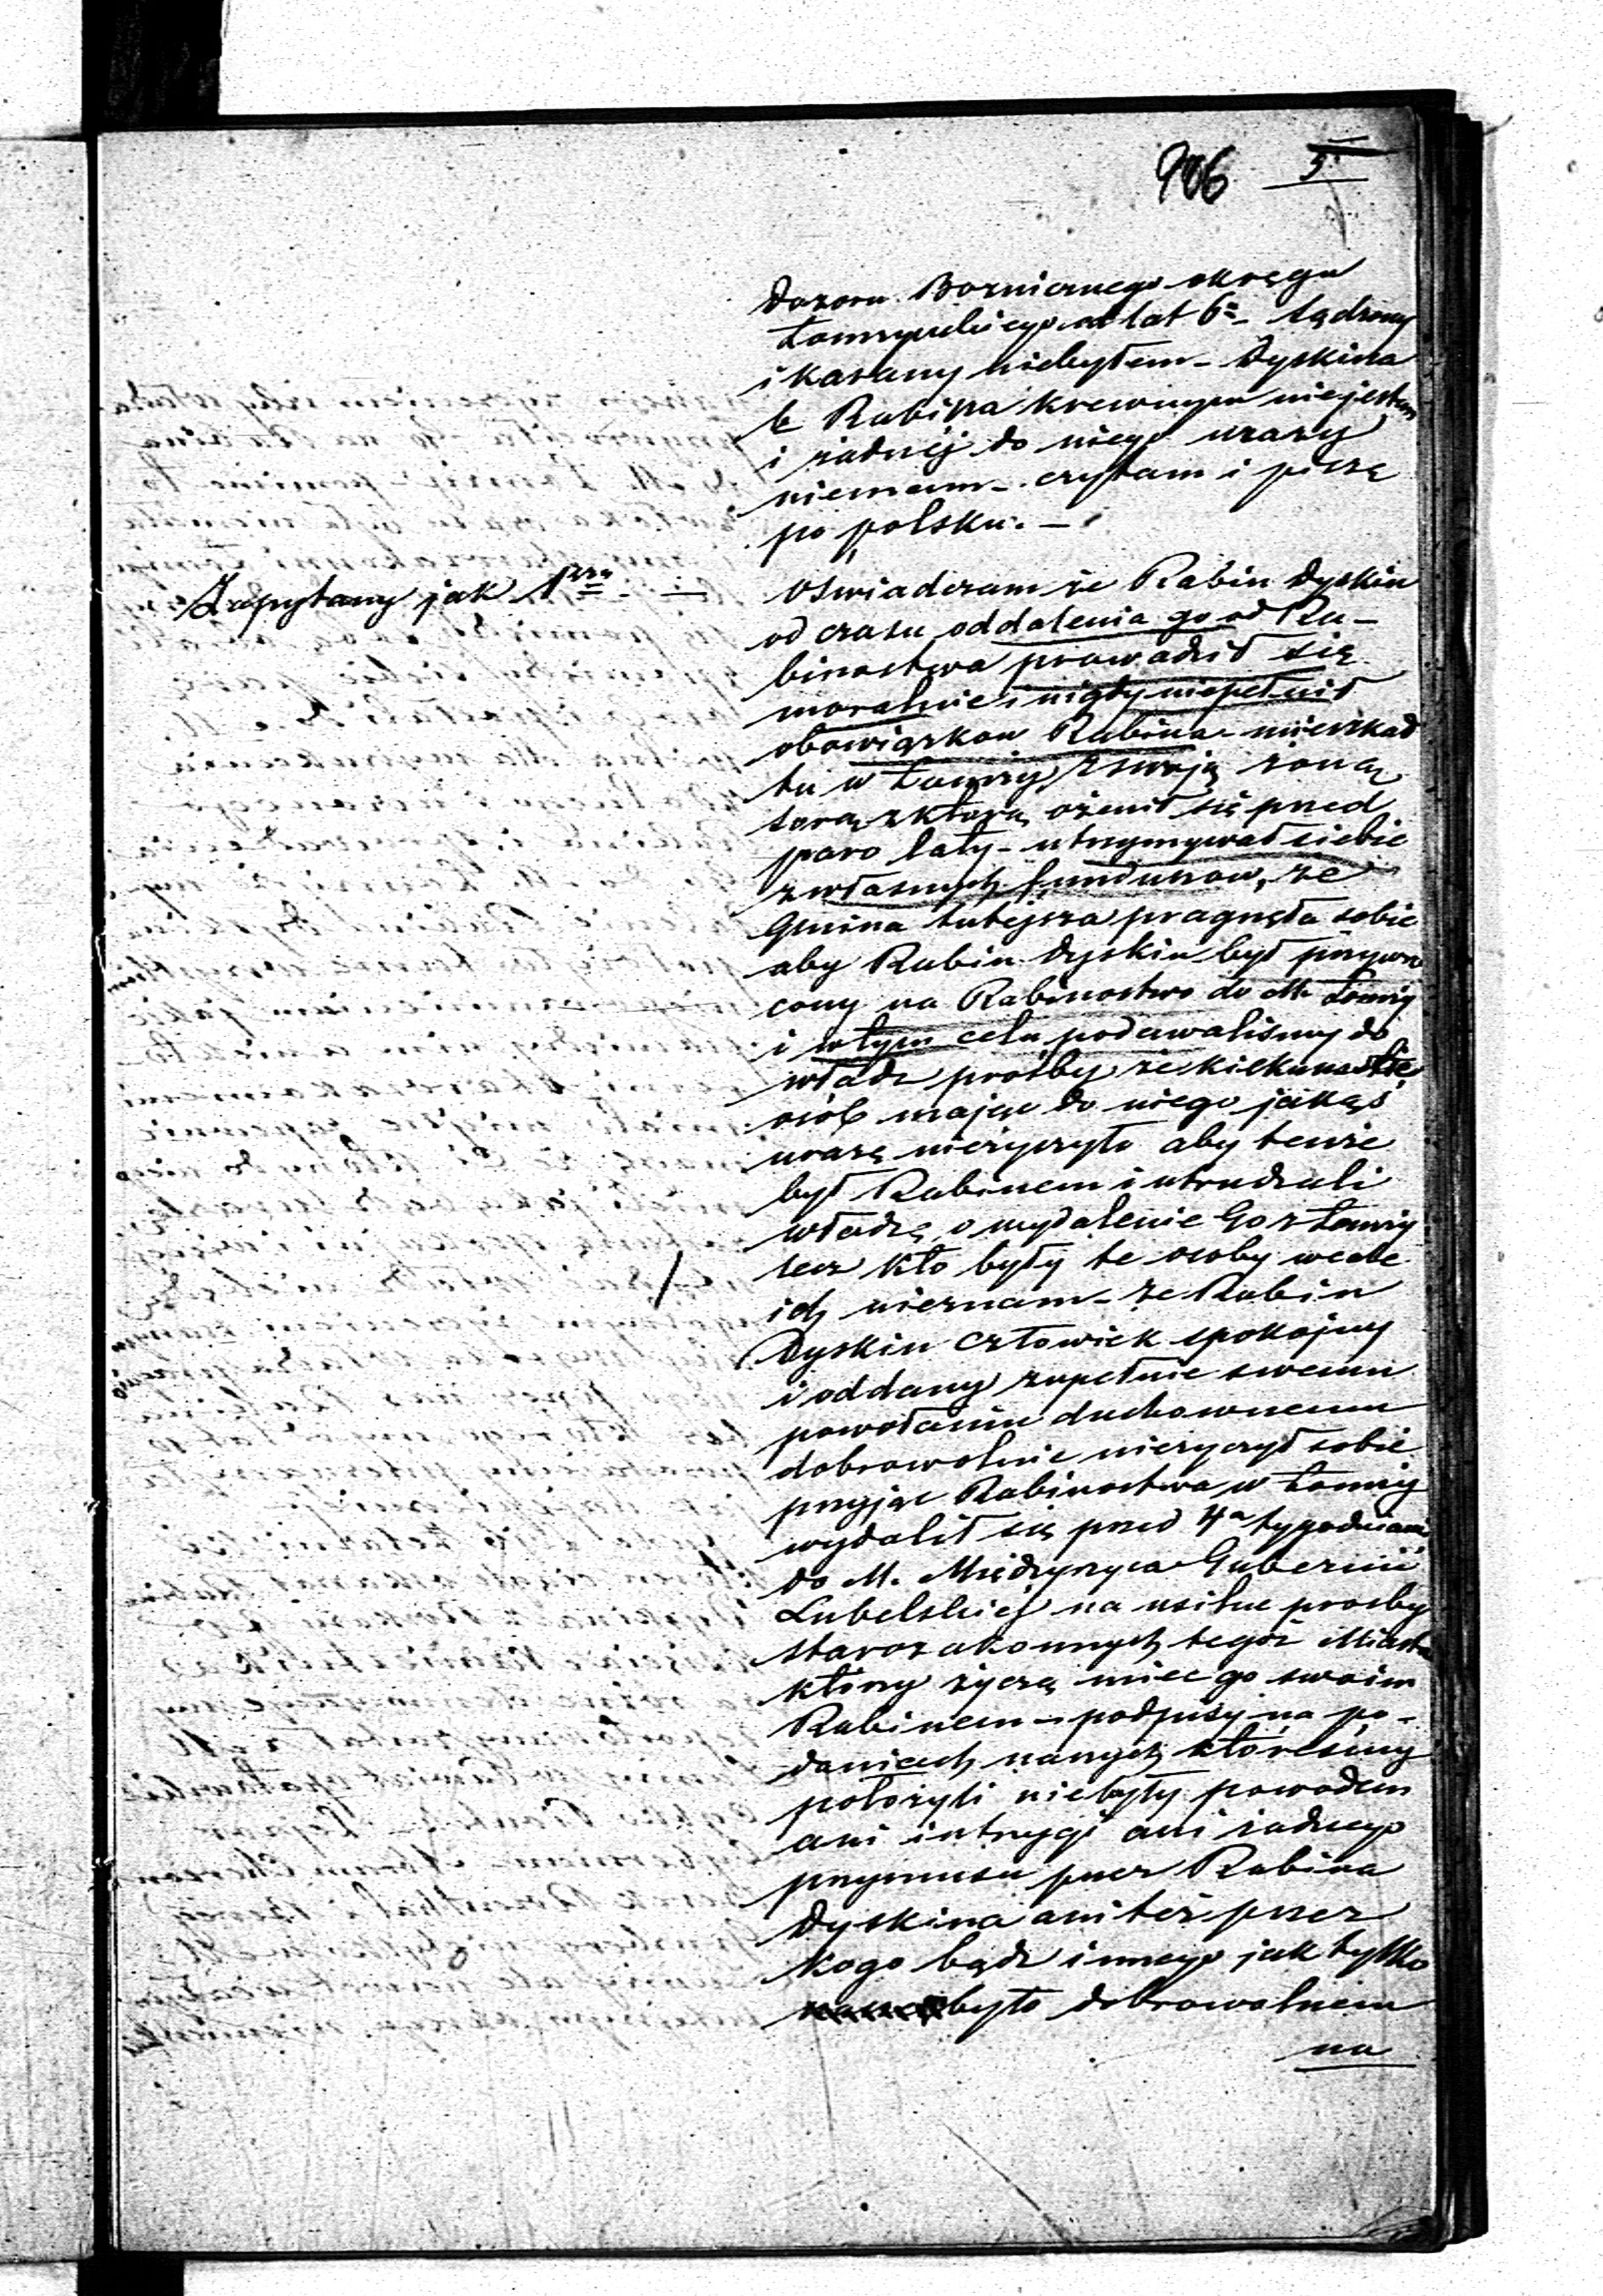 906 5
Dozoru Boznicznego okręgu
Łomzyńskiego od lat 6. Sądzony
i karany niebyłem - Dyskina
b Rabina krewnym niejestem
i żadnéj do niego urazy
niemam - czytam i piszę
po polsku. -
Zapytany jak 1szy. -
Oswiadczam że Rabin Dyskin
od czasu oddalenia go od Ra-
binostwa prowadził się
moralnie i nigdy niepełnił
obowiązkow Rabina - mieszkał
tu w Łomży z swoją żoną
Sorą z którą ożenił się przed
paro laty - utrzymywał siebie
z własnych funduszow, że
Gmina tutejsza pragnęła sobie
aby Rabin Dyskin był przywró
cony na Rabinostwo do M. Łomży
i w tym celu podawalismy do
władz prośby że kilkanaście
osób mając do niego jakąś
urazę nieżyczyło aby tenże
był Rabinem i utrudzali
władzę o wydalenie Go z Łomży
lecz kto były te osoby wcale
ich nieznam - że Rabin
Dyskin człowiek spokojny
i oddany zupełnie swemu
powołaniu duchownemu
dobrowolnie nieżyczył sobie
przyjąc Rabinostwa w Łomży
wydalił się przed 4a tygodniami
do M. Międzyrzyca Gubernii
Lubelskiej na usilne prosby
starozakonnych tegoż Miasta
którzy życzą miec go swoim
Rabinem - podpisy na po-
daniach naszych któreśmy
położyli niebyły powodem
ani intrygi ani żadnego
przymusu przez Rabina
Dyskina ani też przez
kogo bądz innego jak tylko
było dobrowolnem
na